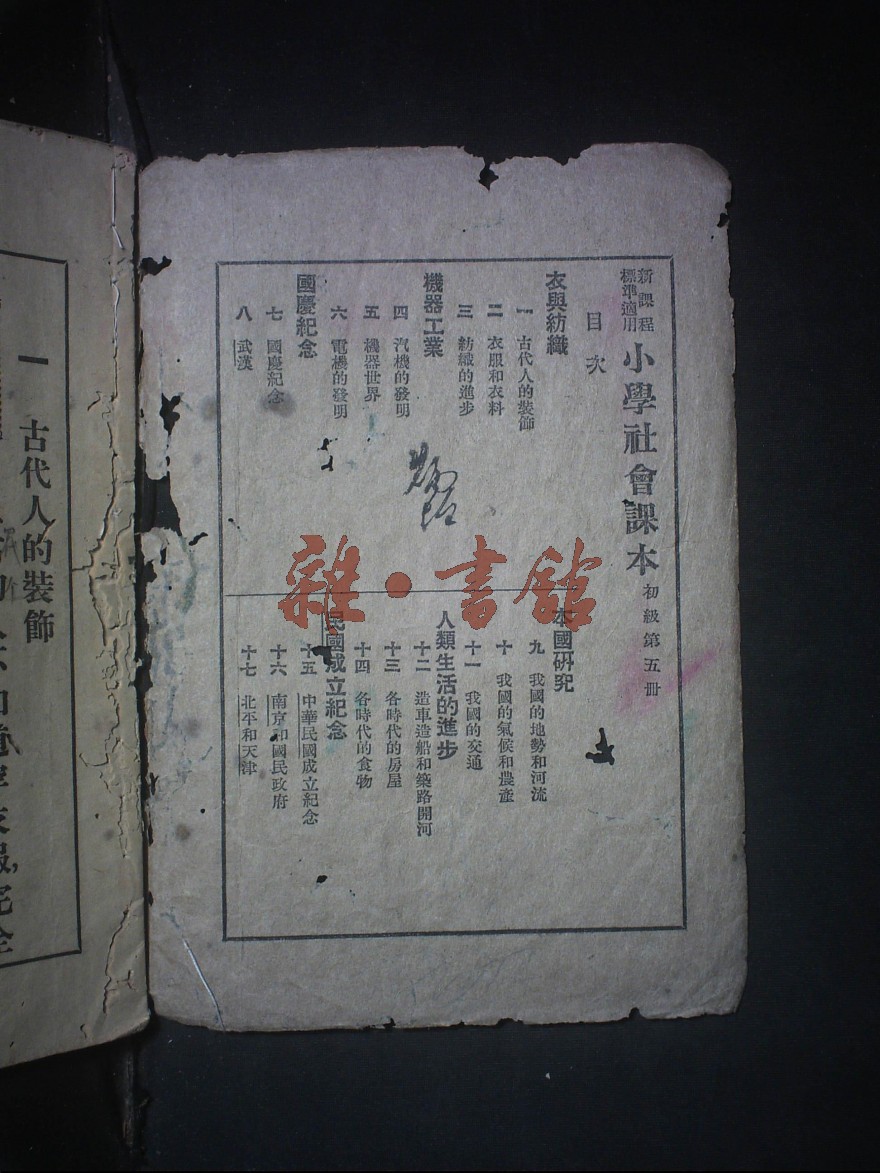 新課程
標準適用
小學社會課本 初級第五冊
目次
衣與紡織
一 古代人的裝飾
二 衣服和衣料
三 紡織的進步
機器工業
四 汽機的發明
五 機器世界
六 電機的發明
國慶紀念
七 國慶紀念
八 武漢
本國研究
九 我國的地勢和河流
十 我國的氣候和農產
十一 我國的交通
人類生活的進步
十二 造車造船和築路開河
十三 各時代的房屋
十四 各時代的食物
民國成立紀念
十五 中華民國成立紀念
十六 南京和國民政府
十七 北平和天津
雜·書館
一 古代人的裝飾
衣服,完全